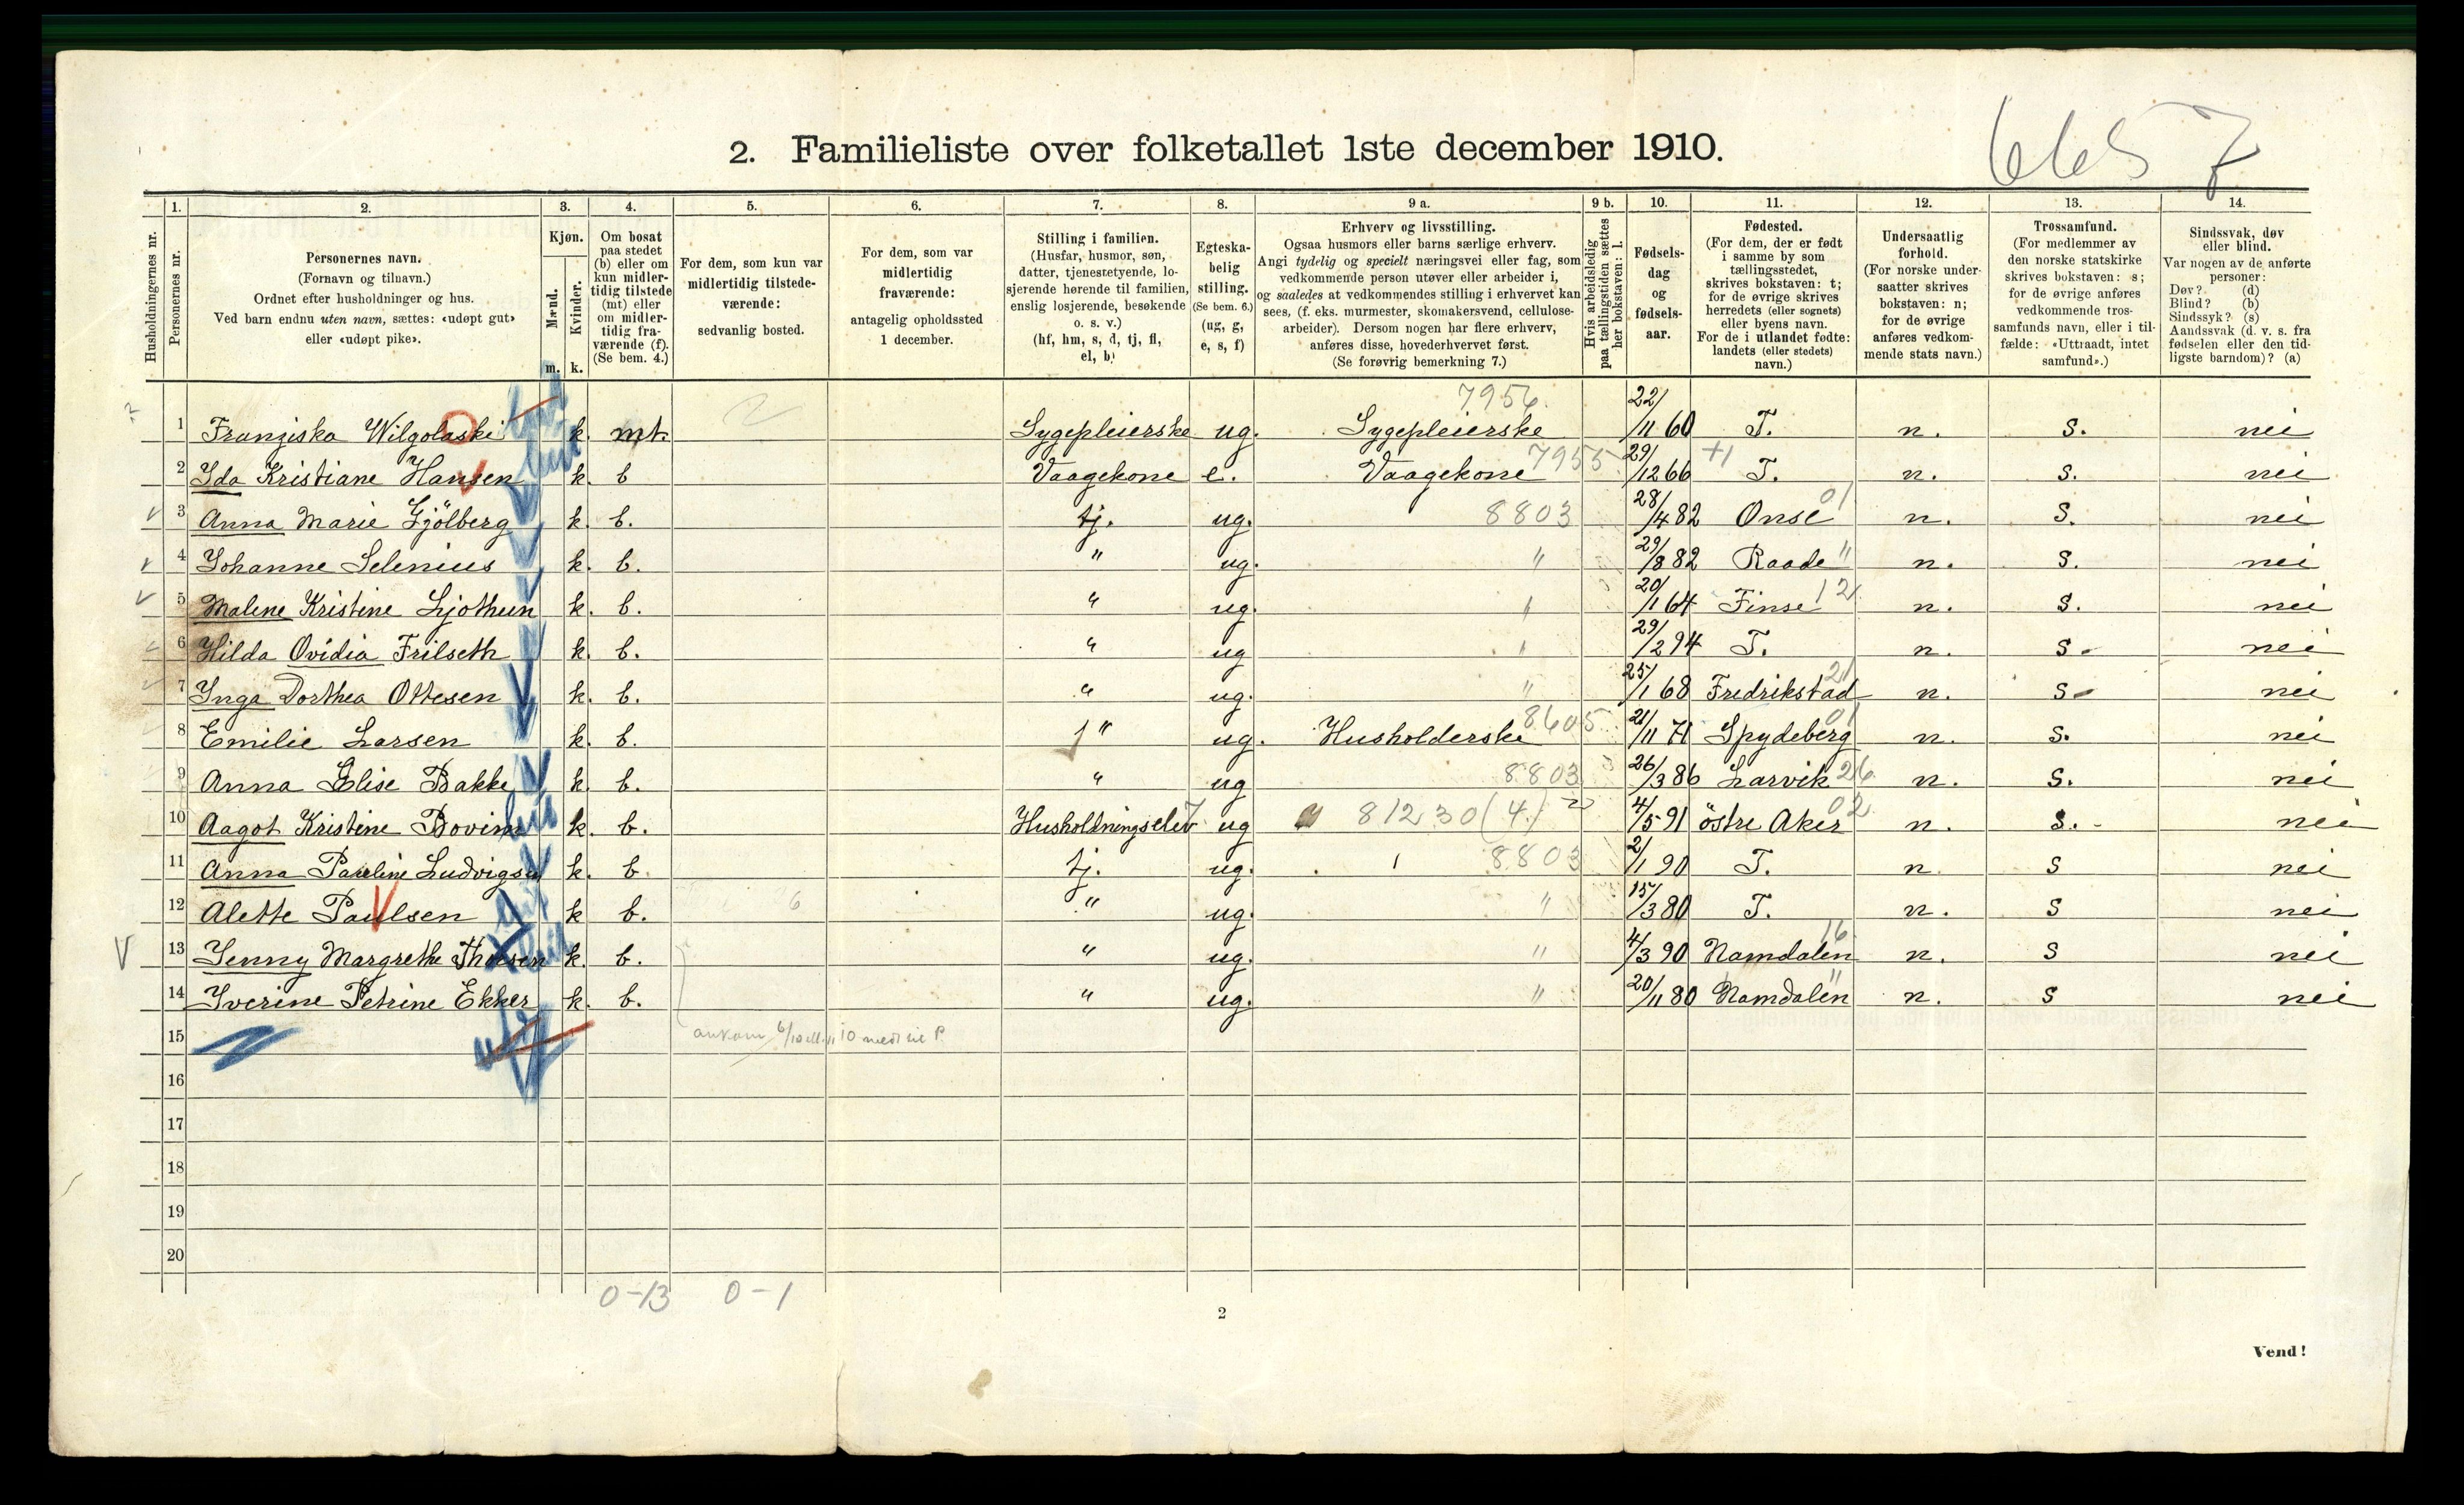 665 7
2. Familieliste over folketallet 1ste december 1910.
1. 2. 3. 4. 5. 6. 7. 8. 9 a. 9 b. 10. 11. 12. 13. 14.
Husholdningernes nr.
Personernes nr.
Personernes navn.
(Fornavn og tilnavn.)
Ordnet efter husholdninger og hus.
Ved barn endnu uten navn, sættes: «udøpt gut»
eller «udøpt pike».
Kjøn.
Mænd.
Kvinder.
m. k.
Om bosat
paa stedet
(b) eller om
kun midler-
tidig tilstede
(mt) eller
om midler-
tidig fra-
værende (f).
(Se bem. 4.)
For dem, som kun var
midlertidig tilstede-
værende:
sedvanlig bosted.
For dem, som var
midlertidig
fraværende:
antagelig opholdssted
1 december.
Stilling i familien.
(Husfar, husmor, søn,
datter, tjenestetyende, lo-
sjerende hørende til familien,
enslig losjerende, besøkende
o. s. v.)
(hf, hm, s, d, tj, fl,
el, b)
Egteska-
belig
stilling.
(Se bem. 6.)
(ug, g,
e, s, f)
Erhverv og livsstilling.
Ogsaa husmors eller barns særlige erhverv.
Angi tydelig og specielt næringsvei eller fag, som
vedkommende person utøver eller arbeider i,
og saaledes at vedkommendes stilling i erhvervet kan
sees, (f. eks. murmester, skomakersvend, cellulose-
arbeider). Dersom nogen har flere erhverv,
anføres disse, hovederhvervet først.
(Se forøvrig bemerkning 7.)
Hvis arbeidsledig
paa tællingstiden sættes
her bokstaven: l.
Fødsels-
dag
og
fødsels-
aar.
Fødested.
(For dem, der er født
i samme by som
tællingsstedet,
skrives bokstaven: t;
for de øvrige skrives
herredets (eller sognets)
eller byens navn.
For de i utlandet fødte:
landets (eller stedets)
navn.)
Undersaatlig
forhold.
(For norske under-
saatter skrives
bokstaven: n;
for de øvrige
anføres vedkom-
mende stats navn.)
Trossamfund.
(For medlemmer av
den norske statskirke
skrives bokstaven: s;
for de øvrige anføres
vedkommende tros-
samfunds navn, eller i til-
fælde: «Uttraadt, intet
samfund».)
Sindssvak, døv
eller blind.
Var nogen av de anførte
personer:
Døv? (d)
Blind? (b)
Sindssyk? (s)
Aandssvak (d. v. s. fra
fødselen eller den tid-
ligste barndom)? (a)
1 Franziska Wilgolaski k. mt. 2 Sygepleierske ug. Sygepleierske 7956. 22/11 60 T. n. s. nei
2 Ida Kristiane Hansen k. b Vaagekone e. Vaagekone 7955 29/12 66 T. n. s. nei
3 Anna Marie Gjölberg k. b. tj. ug. 8803 28/4 82 Onsø 01 n. s. nei
4 Johanne Selenius k. b. " ug. " 29/8 82 Raade " n. s. nei
5 Malene Kristine k. b. " ug. " 20/1 64 Finse 12 n. s. nei
6 Hilda Ovidia Frilseth k. b. " ug " 29/2 94 T. n. s. nei
7 Inga Dorthea Ottesen k. b. " ug. " 25/1 68 Fredrikstad 21 n. s. nei
8 Emilie Larsen k. b. " ug. Husholderske 8605 21/11 71 Spydeberg 01 n. s. nei
9 Anna Elise Bakke k. b. " ug 8803 26/3 86 Larvik 26 n. s. nei
10 Aagot Kristine Bovim k. b. Husholdningselev ug 81230 (4) 4/5 91 östre Aker 02 n. s. nei
11 Anna Pauline Ludvigsen k. b. tj. ug. 8803 2/1 90 T. n. s nei
12 Alette Paulsen k b. 6 " ug. " 15/3 80 T. n. s nei
13 Jenny Margrethe Thorsen k. b. " ug. " 4/3 90 Namdalen 16 n. s nei
14 Iverine Petrine Ekker k. b. " ug. " 20/11 80 Namdalen " n. s nei
15
16
17
18
19
20
0-13 0-1
2
Vend!